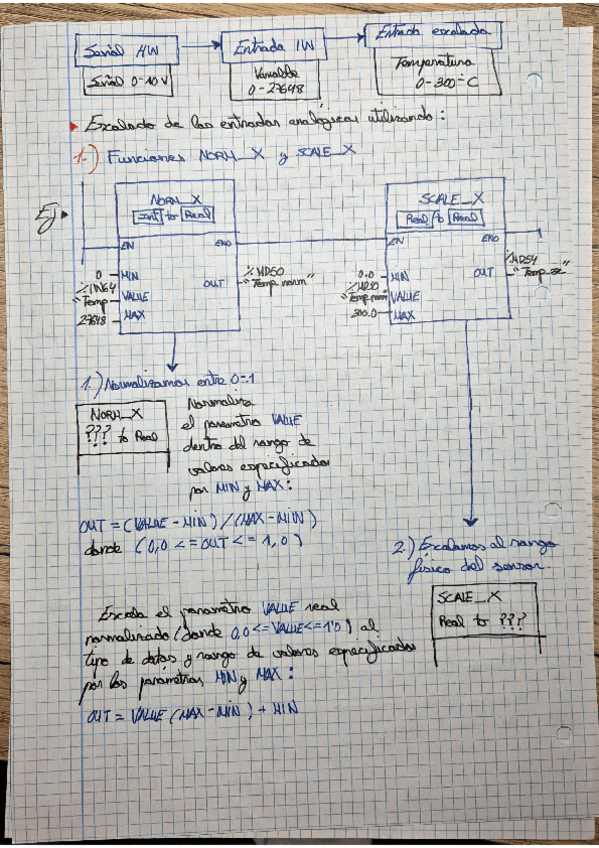 Señal HW
Entrada IW
Entrada escalada
Señal 0-10V
Variable
0-27648
Temperatura
0-300°C
▸ Escalado de las entradas analógicas utilizando:
1.) Funciones NORM_X y SCALE_X
Ej▸
NORM_X
Int to Real
EN ENO
0 MIN
%IW64
"Temp" VALUE
27648 MAX
OUT %MD50
"Temp norm"
SCALE_X
Real to Real
EN ENO
0.0 MIN
%MD50
"Temp norm" VALUE
300.0 MAX
OUT %MD54
1.) Normalizamos entre 0-1
NORM_X
??? to Real
Normaliza
el parametro VALUE
dentro del rango de
valores especificados
por MIN y MAX:
OUT = (VALUE - MIN) / (MAX - MIN)
donde (0,0 <= OUT <= 1,0)
2.) Escalamos al rango
físico del sensor.
SCALE_X
Real to ???
Escala el parametro VALUE real
normalizado (donde 0,0 <= VALUE <= 1'0) al
tipo de datos y rango de valores especificados
por los parámetros MIN y MAX:
OUT = VALUE (MAX - MIN) + MIN